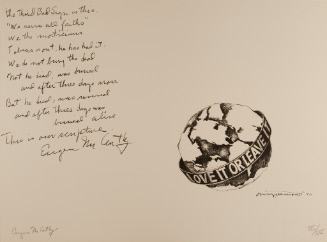 The Third Bad Sign is this.
"We serve all faiths"
We the morticians
Tobias is out, he has had it.
We do not bury the dead
Not he died, was buried
and after three days arose
But he died, was revived
and after three days was
buried alive
This is our scripture
Eugene McCarthy
LOVE IT OR LEAVE IT
Eugene McCarthy